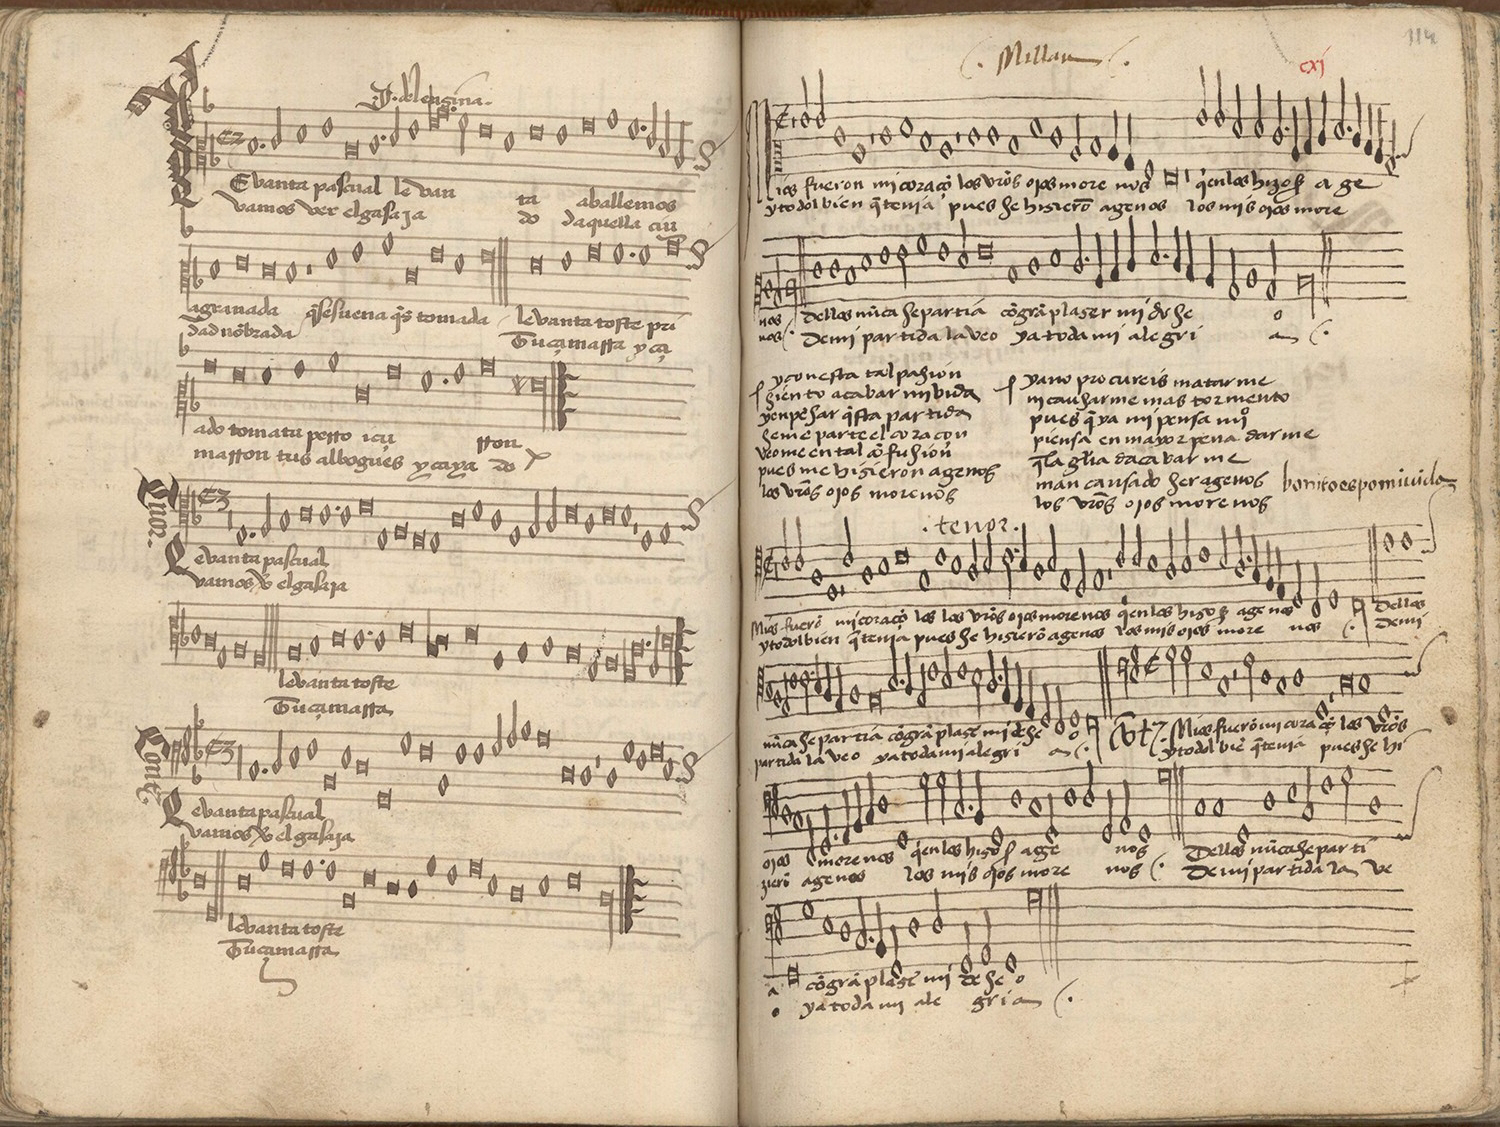 .J. del enzina.
Evanta pascual le van ta aballemos
vamos ver el gasaja do daquella ciu
agranada q̄ se suena q̄s tomada levanta toste pri
dad nōbrada Tu çamarra y ca
ado toma tu perro y çu rron
marron tus albogues y caya do
Tenor.
Levanta pascual
vamos el gasaja
levanta toste
Tu çamarra
Contra
Levanta pascual
vamos el gasaja
levanta toste
Tu çamarra
114
Millan
cxj
ios fueron mi coraçō los vr̄os ojos more nos q̄en los hizo a ge
y todo l bien q̄ tenia pues se hizierō agenos los mis ojos more
nos dellos nūca se partia cō grā plazer mi de se o
nos De mi partida la veo ya toda mi alegri a
y con esta tal pasion
siento acabar mi vida
y en pēsar q̄sta partida
se me parte el coraçon
veome en tal cōfusion
pues me hizieron agenos
los vr̄os ojos morenos
ya no procureis matarme
ni causarme mas tormento
pues q̄ ya mi pensa miº
piensa en mayor pena darme
q̄ la gl̄ia dacabarme
man causado ser agenos
los vr̄os ojos morenos
bonito es por mi vida
.tenor.
Mios fuerō mi coraçō los los vr̄os ojos morenos q̄en los hizo agenos Dellos
y todo l bien q̄ tenia pues se hizierō agenos los mis ojos more nos De mi
nūca se partia cō grā plazē mi de se o Mios fuerō mi coraçō los vr̄os
partida la veo ya toda mi alegri a y todo l biē q̄ tenia pues se hi
ojos morenos q̄en los hizo age nos Dellos nūca se parti
zierō agenos los mis ojos more nos De mi partida la ve
a cō grā plazē mi de se o
o ya toda mi ale gri a